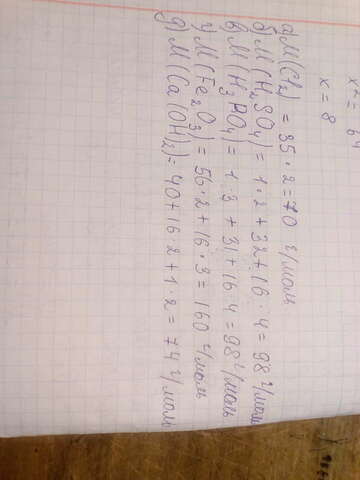 x² = 64
x = 8
а) M(Cl₂) = 35 · 2 = 70 г/моль
б) M(H₂SO₄) = 1 · 2 + 32 + 16 · 4 = 98 г/моль
в) M(H₃PO₄) = 1 · 3 + 31 + 16 · 4 = 98 г/моль
г) M(Fe₂O₃) = 56 · 2 + 16 · 3 = 160 г/моль
д) M(Ca(OH)₂) = 40 + 16 · 2 + 1 · 2 = 74 г/моль